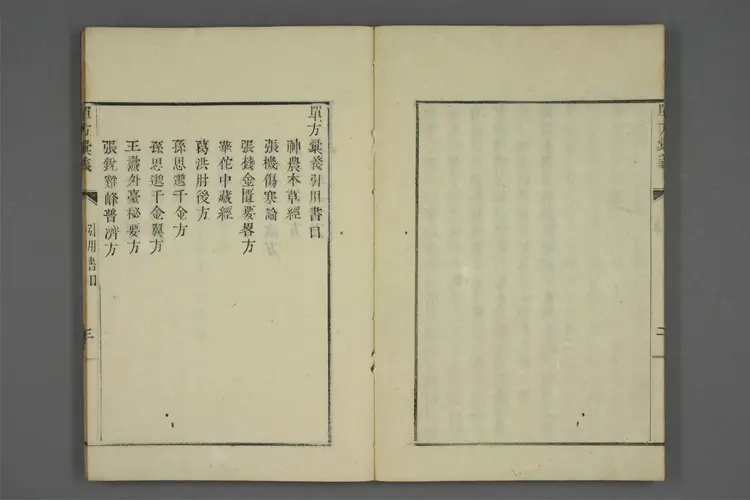 單方彙義
二
單方彙義引用書目
神農本草經
張機傷寒論
張機金匱要畧方
華佗中藏經
葛洪肘後方
孫思邈千金方
孫思邈千金翼方
王燾外臺秘要方
張銳雞峰普濟方
單方彙義
引用書目
三